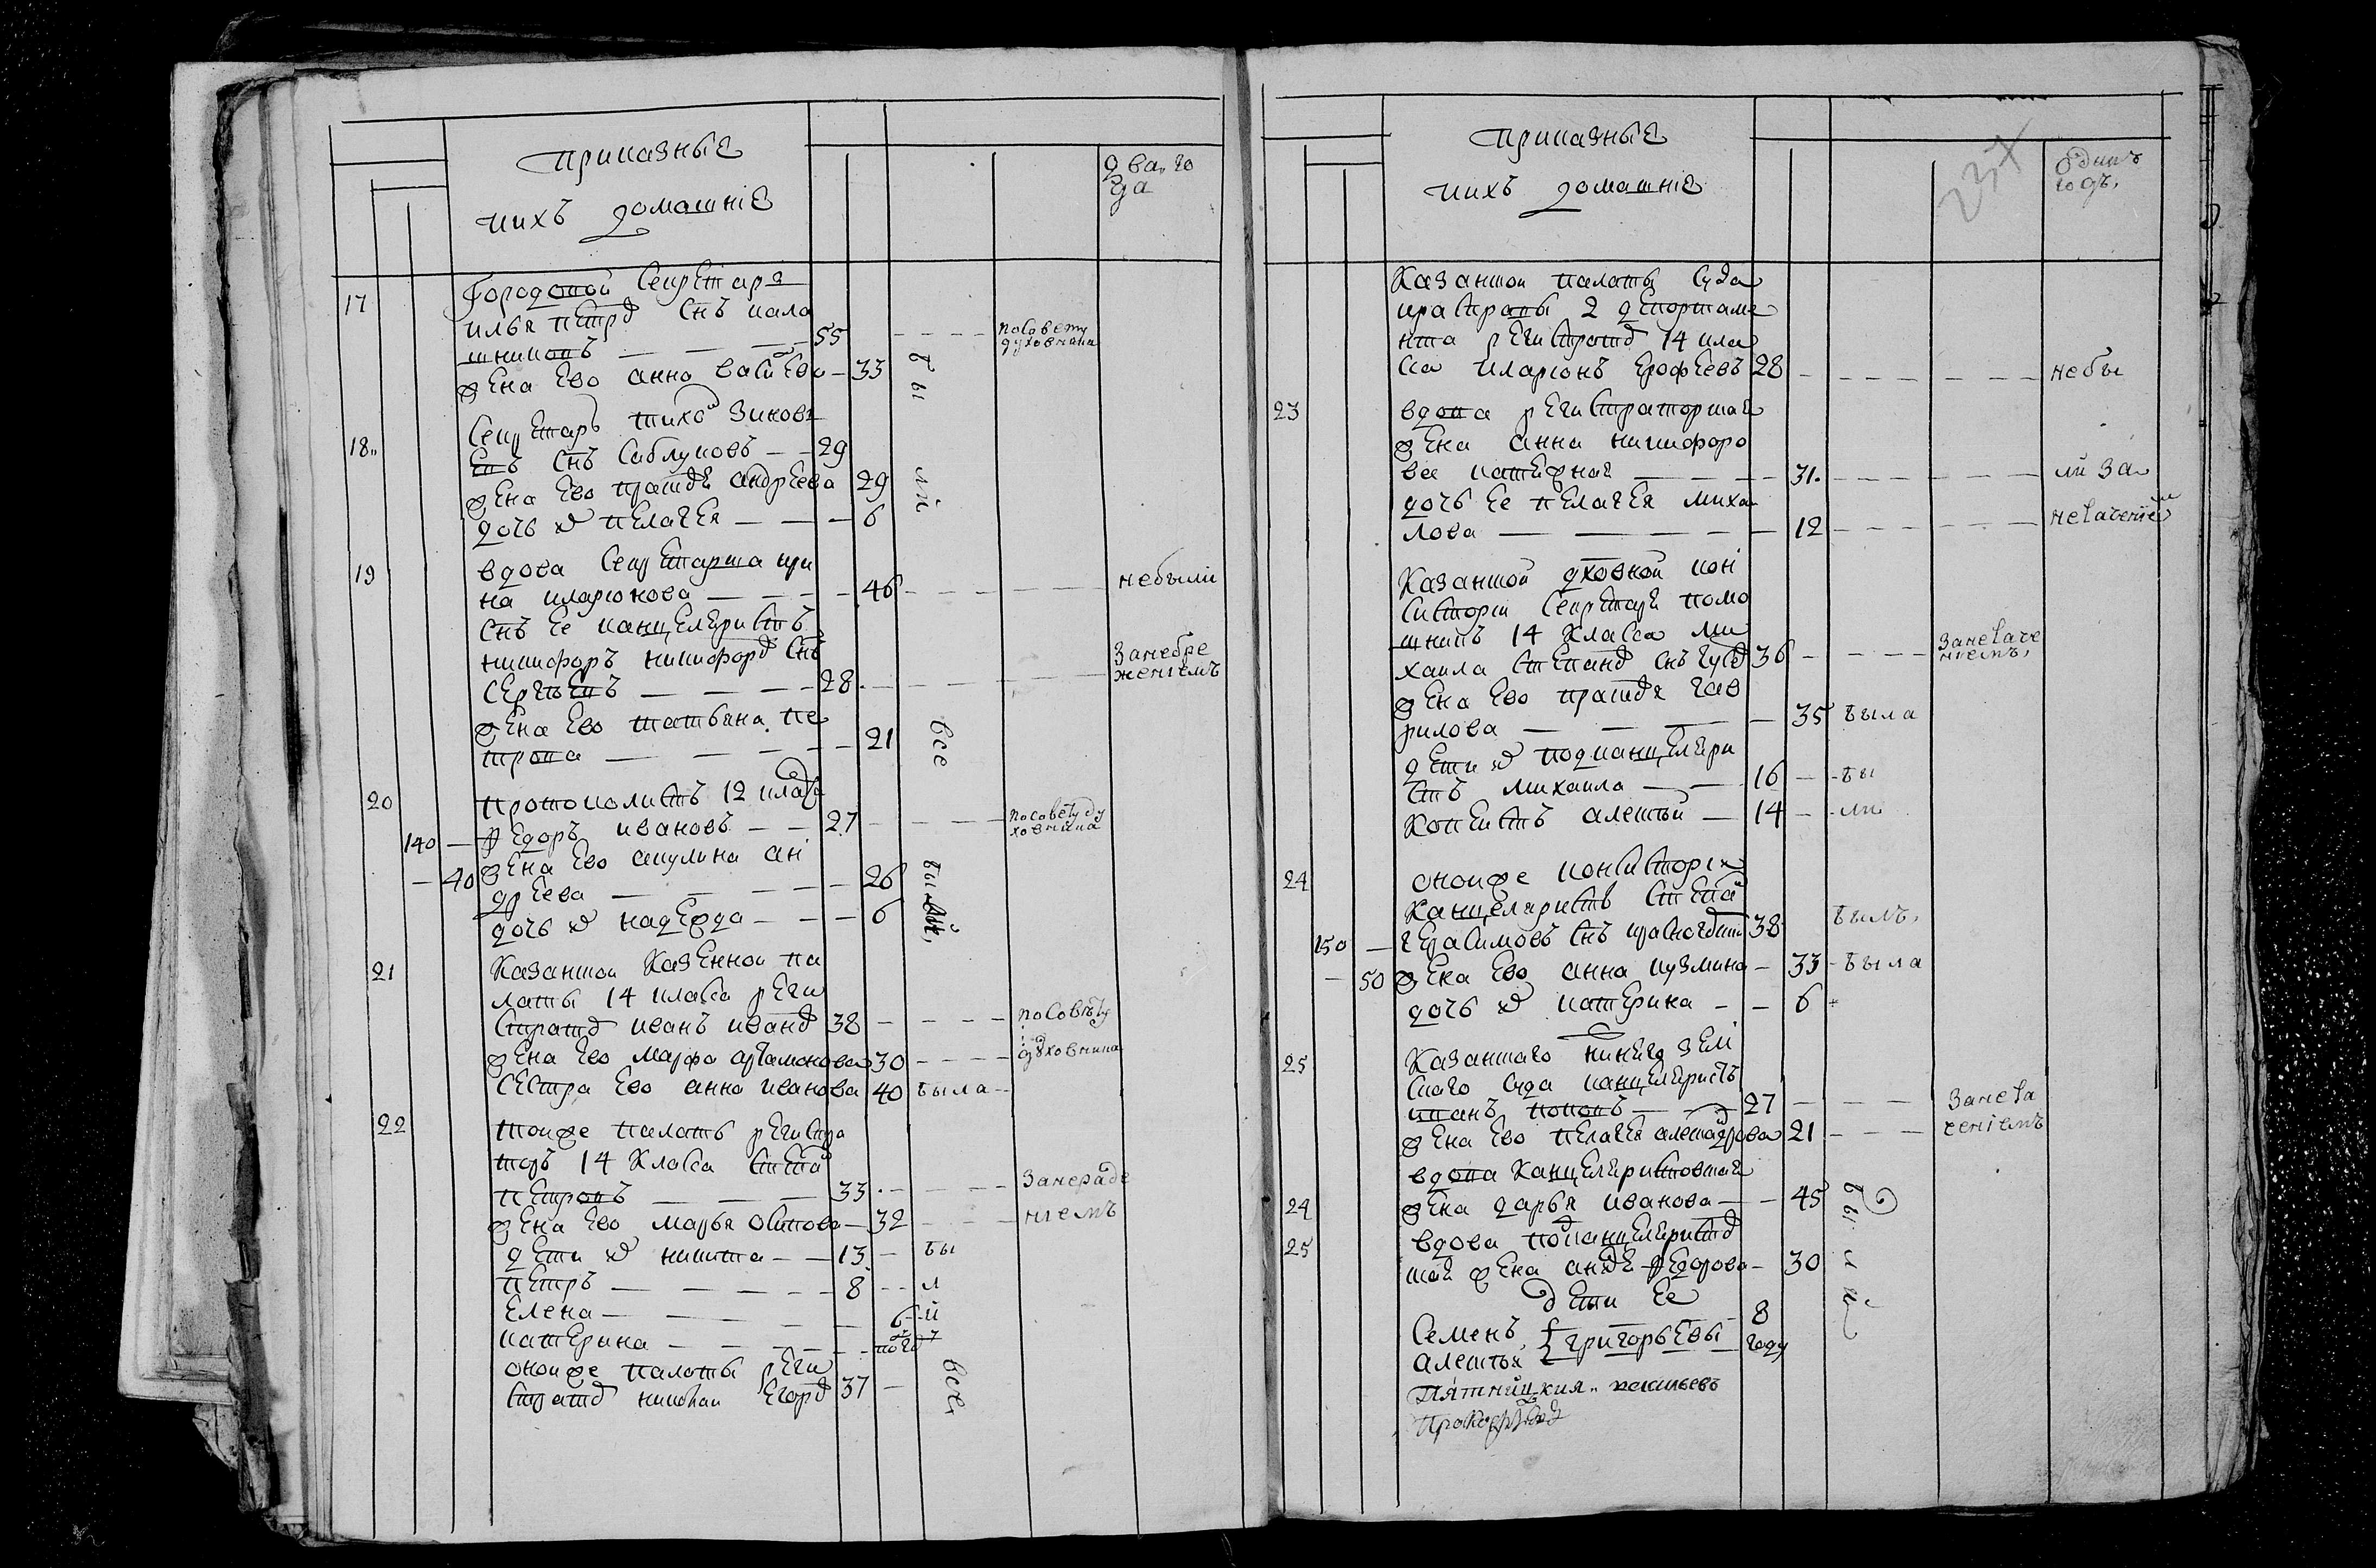 приказные
ихъ домашніе
два го
да
17
Городовой Секретарь
илья петровъ снъ кала
шниковъ 55
по совету
духовника
жена ево анна васильева 33
18
Секретарь тихонъ зиновь
евъ снъ Саблуковъ 29
жена ево прасковья андреева 29
дочь ихъ пелагея 6
бы
ли
19
вдова Секретарша ири
на иларионова 46
небыли
снъ ее канцеляристъ
никифоръ никифоровъ снъ
сергѣевъ 28
за небре
жениемъ
жена ево татьяна пе
трова 21
все
20
протоколистъ 12 класа
140 федоръ ивановъ 27
по совету ду
ховника
40 жена ево акулина ан
дреева 26
дочь ихъ надежда 6
были
21
Казанской Казенной па
латы 14 класа реги
страторъ иванъ ивановъ 38
по совѣту
жена ево марфа артамонова 30
духовника
сестра ево анна иванова 40 была
22
тойже палаты регистра
торъ 14 класа степанъ
петровъ 33
за нераде
жена ево марья осипова 32
ниемъ
дети ихъ никита 13 бы
петръ 8 л
елена 6 и
катерина
оной же палаты реги
страторъ николаи егоровъ 37
все
приказные
ихъ домашніе
237
одинъ
годъ
Казанской палаты суда
и расправы 2 департаме
нта регистраторъ 14 кла
са иларионъ ерофеевъ 28
небы
23
вдова регистраторская
жена анна никифоро
ва 31
ли за
дочь ее пелагея михаи
лова 12
неимением
Казанской духовной кон
систории секретарь помо
шникъ 14 класса ми
хаила степановъ снъ гусевъ 36
жена ево прасковья гав
рилова 35 была
дети ихъ подканцеляри
стъ михаила 16 бы
Копеистъ алексѣй 14 ли
24
оной же консистории
Канцеляристъ степанъ
150 герасимовъ снъ 38 былъ
50 жена ево анна кузмина 33 была
дочь ихъ катерина 6
25
Казанскаго нижняго зем
скаго суда канцеляристъ
иванъ поповъ 27
жена ево пелагея александрова 21
вдова Канцеляристовская
24
жена дарья иванова 45
25
вдова подканцелярист
ская жена федорова 30
дети ее
Семенъ 8
алексѣй григорьевы году
были
пятницкия